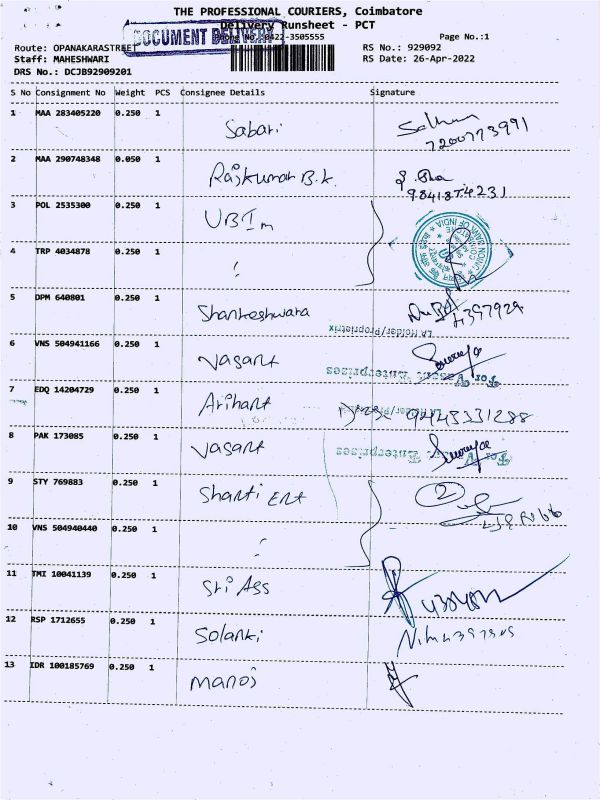 THE PROFESSIONAL COURIERS, Coimbatore
Delivery Runsheet - PCT
DOCUMENT DELIVERY
Phone No.:0422-3505555 Page No.:1
Route: OPANAKARASTREET RS No.: 929092
Staff: MAHESHWARI RS Date: 26-Apr-2022
DRS No.: DCJB92909201
S No Consignment No Weight PCS Consignee Details Signature
1 MAA 283405220 0.250 1 Sabari
7200773991
2 MAA 290748348 0.050 1 Rajkumar B.K.
3 POL 2535300 0.250 1 UBI m
UNION BANK OF INDIA
4 TRP 4034878 0.250 1
5 DPM 640801 0.250 1 Shankeshwara
LA Holder/Proprietrix
6 VNS 504941166 0.250 1 Vasant
For Vasant Enterprises
7 EDQ 14204729 0.250 1 Arihant 9443331288
LA Holder/Proprietrix
8 PAK 173085 0.250 1 Vasant
For Vasant Enterprises
9 STY 769883 0.250 1 Shanti Ent 2
10 VNS 504940440 0.250 1
11 TMI 10041139 0.250 1 Sri Ass
12 RSP 1712655 0.250 1 Solanki
13 IDR 100185769 0.250 1 Manoj